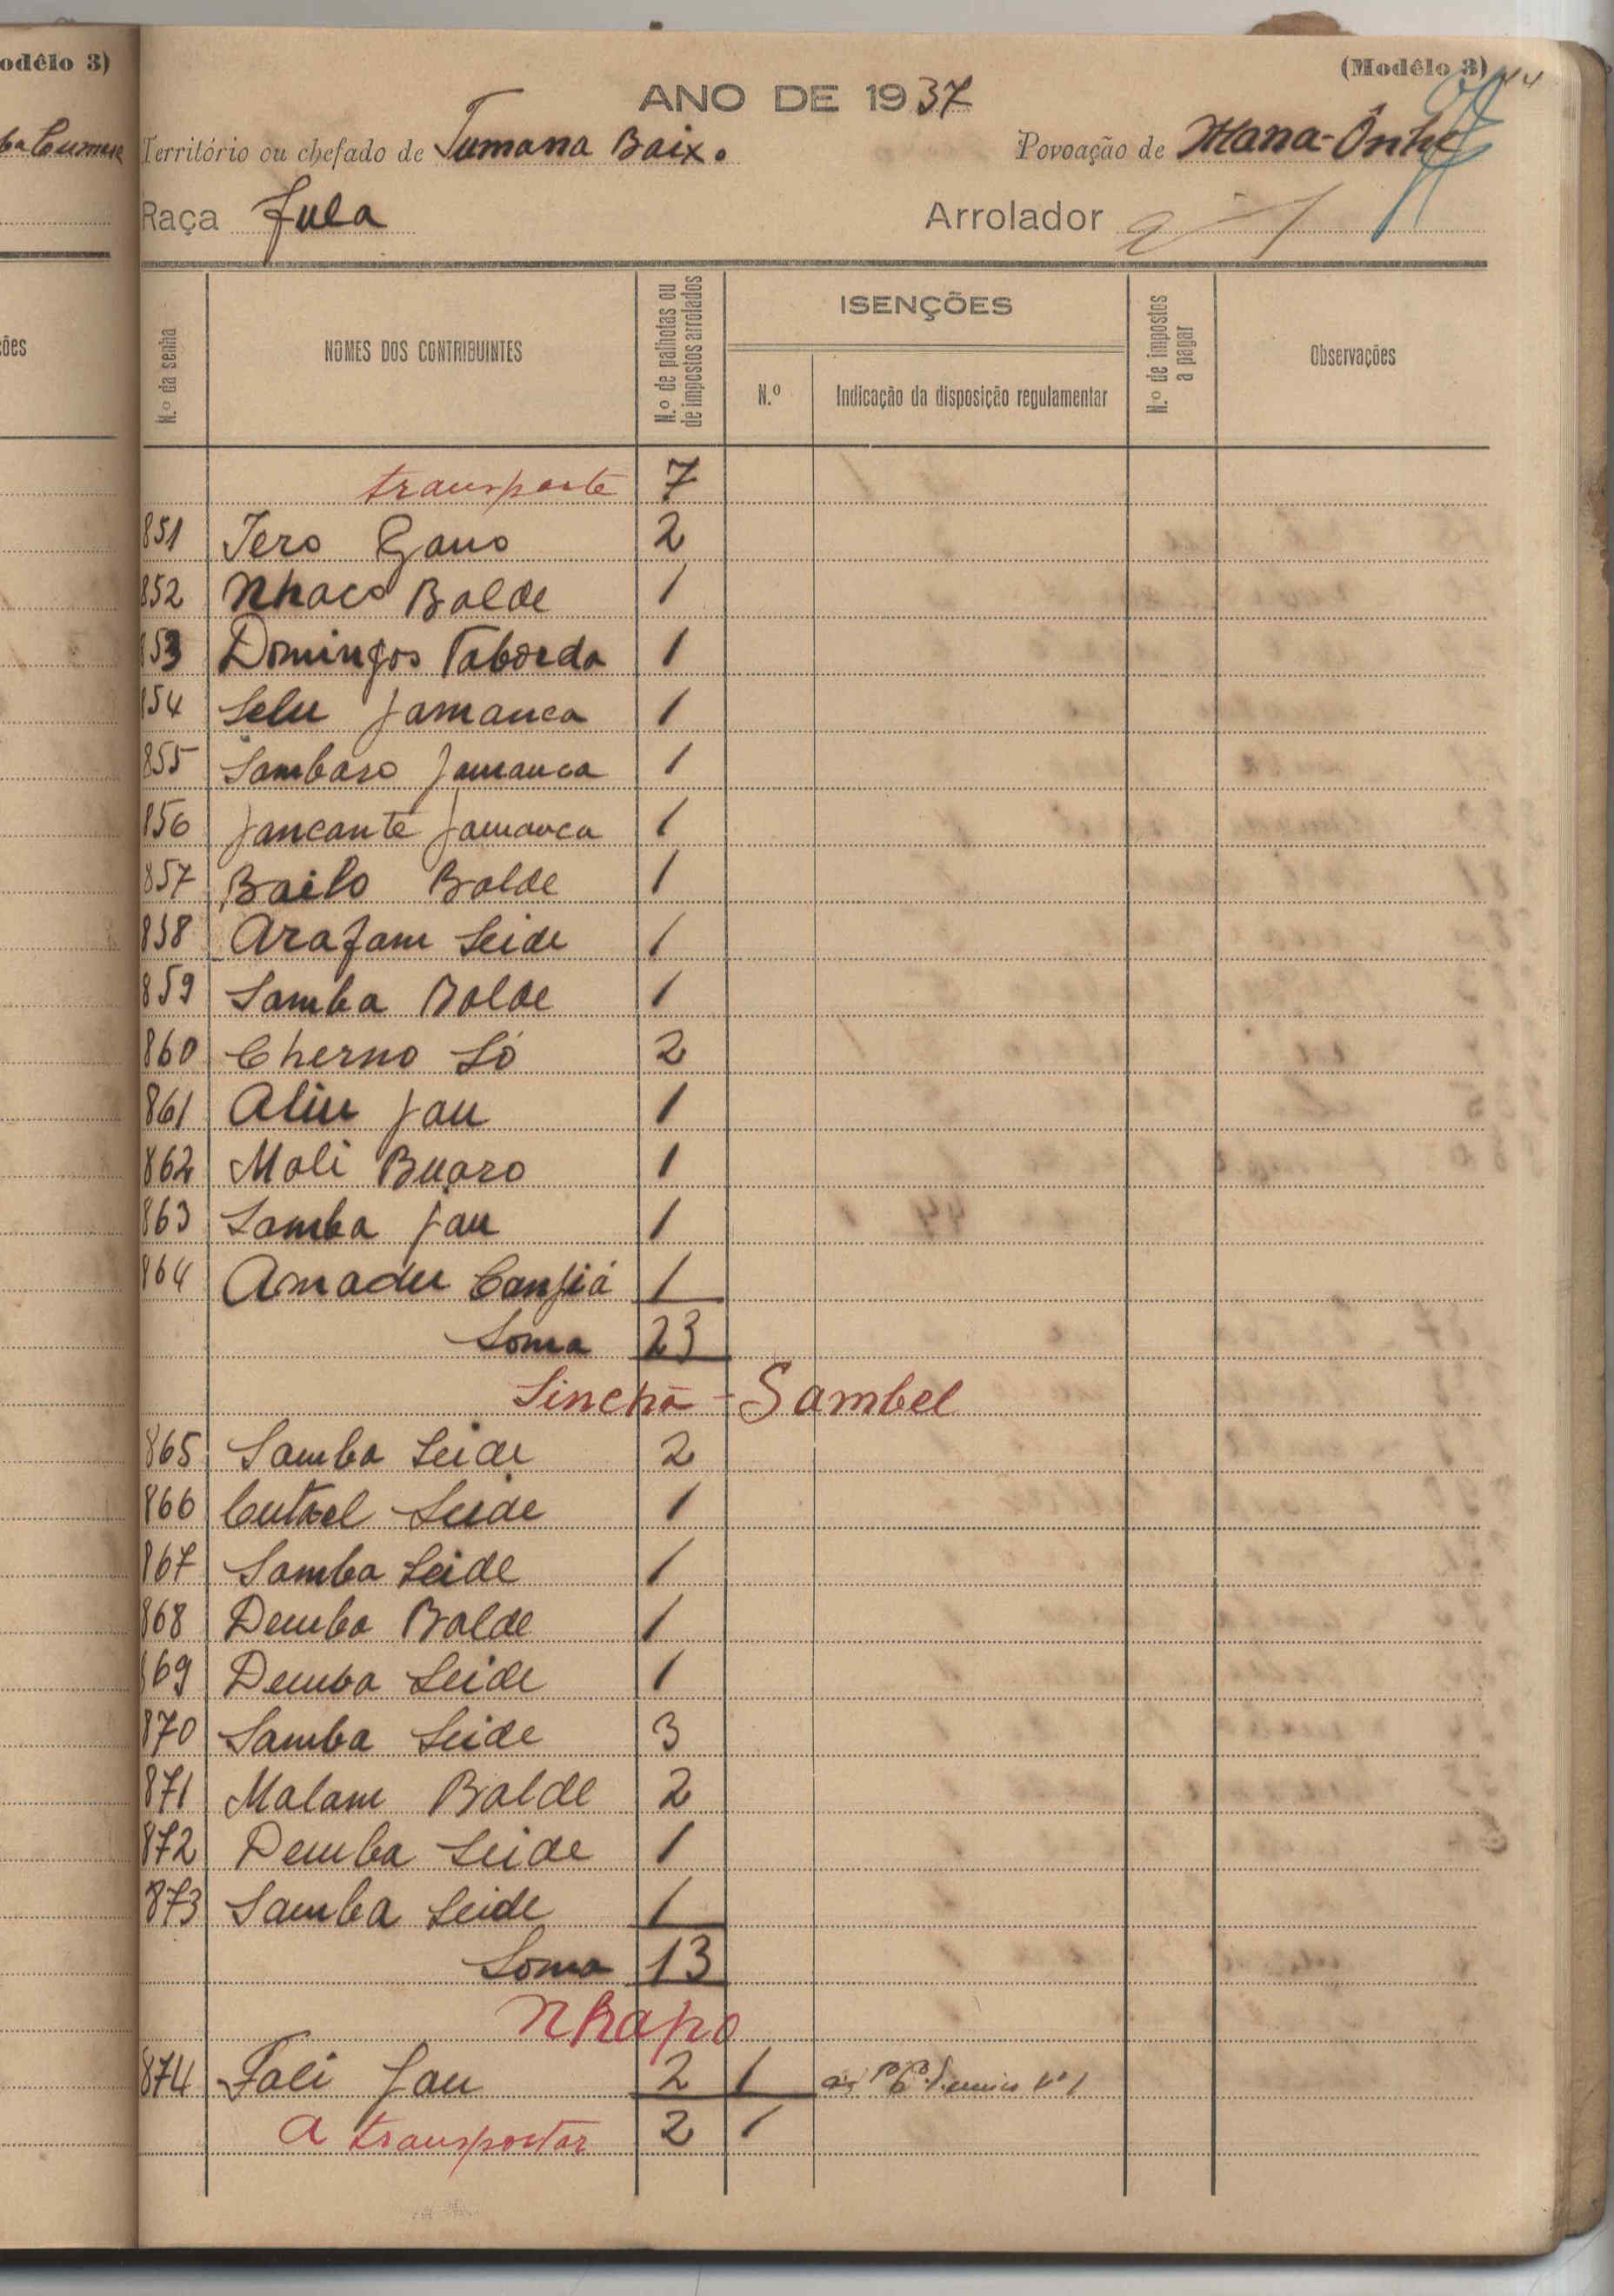 (Modêlo 3)
ANO DE 1937
Território ou chefado de Tumana Baixo
Povoação de Mana-Ônhe
Raça Fula
Arrolador
N.º da senha
NOMES DOS CONTRIBUINTES
N.º de palhotas ou de impostos arrolados
ISENÇÕES
N.º
Indicação da disposição regulamentar
N.º de impostos a pagar
Observações
transporte 7
851 Jero Gano 2
852 Nhaco Balde 1
853 Domingos Taborda 1
854 Selu Jamanca 1
855 Sambaro Jamanca 1
856 Jancante Jamanca 1
857 Bailo Balde 1
858 Arafam Seide 1
859 Samba Balde 1
860 Cherno Só 2
861 Aliu Jau 1
862 Mali Buaro 1
863 Samba Jau 1
864 Amadu Canjiá 1
Soma 23
Sinchã - Sambel
865 Samba Seide 2
866 Seide 1
867 Samba Seide 1
868 Demba Balde 1
869 Demba Seide 1
870 Samba Seide 3
871 Malam Balde 2
872 Demba Seide 1
873 Samba Seide 1
Soma 13
Nhapo
874 Fali Jau 2 1
A transportar 2 1